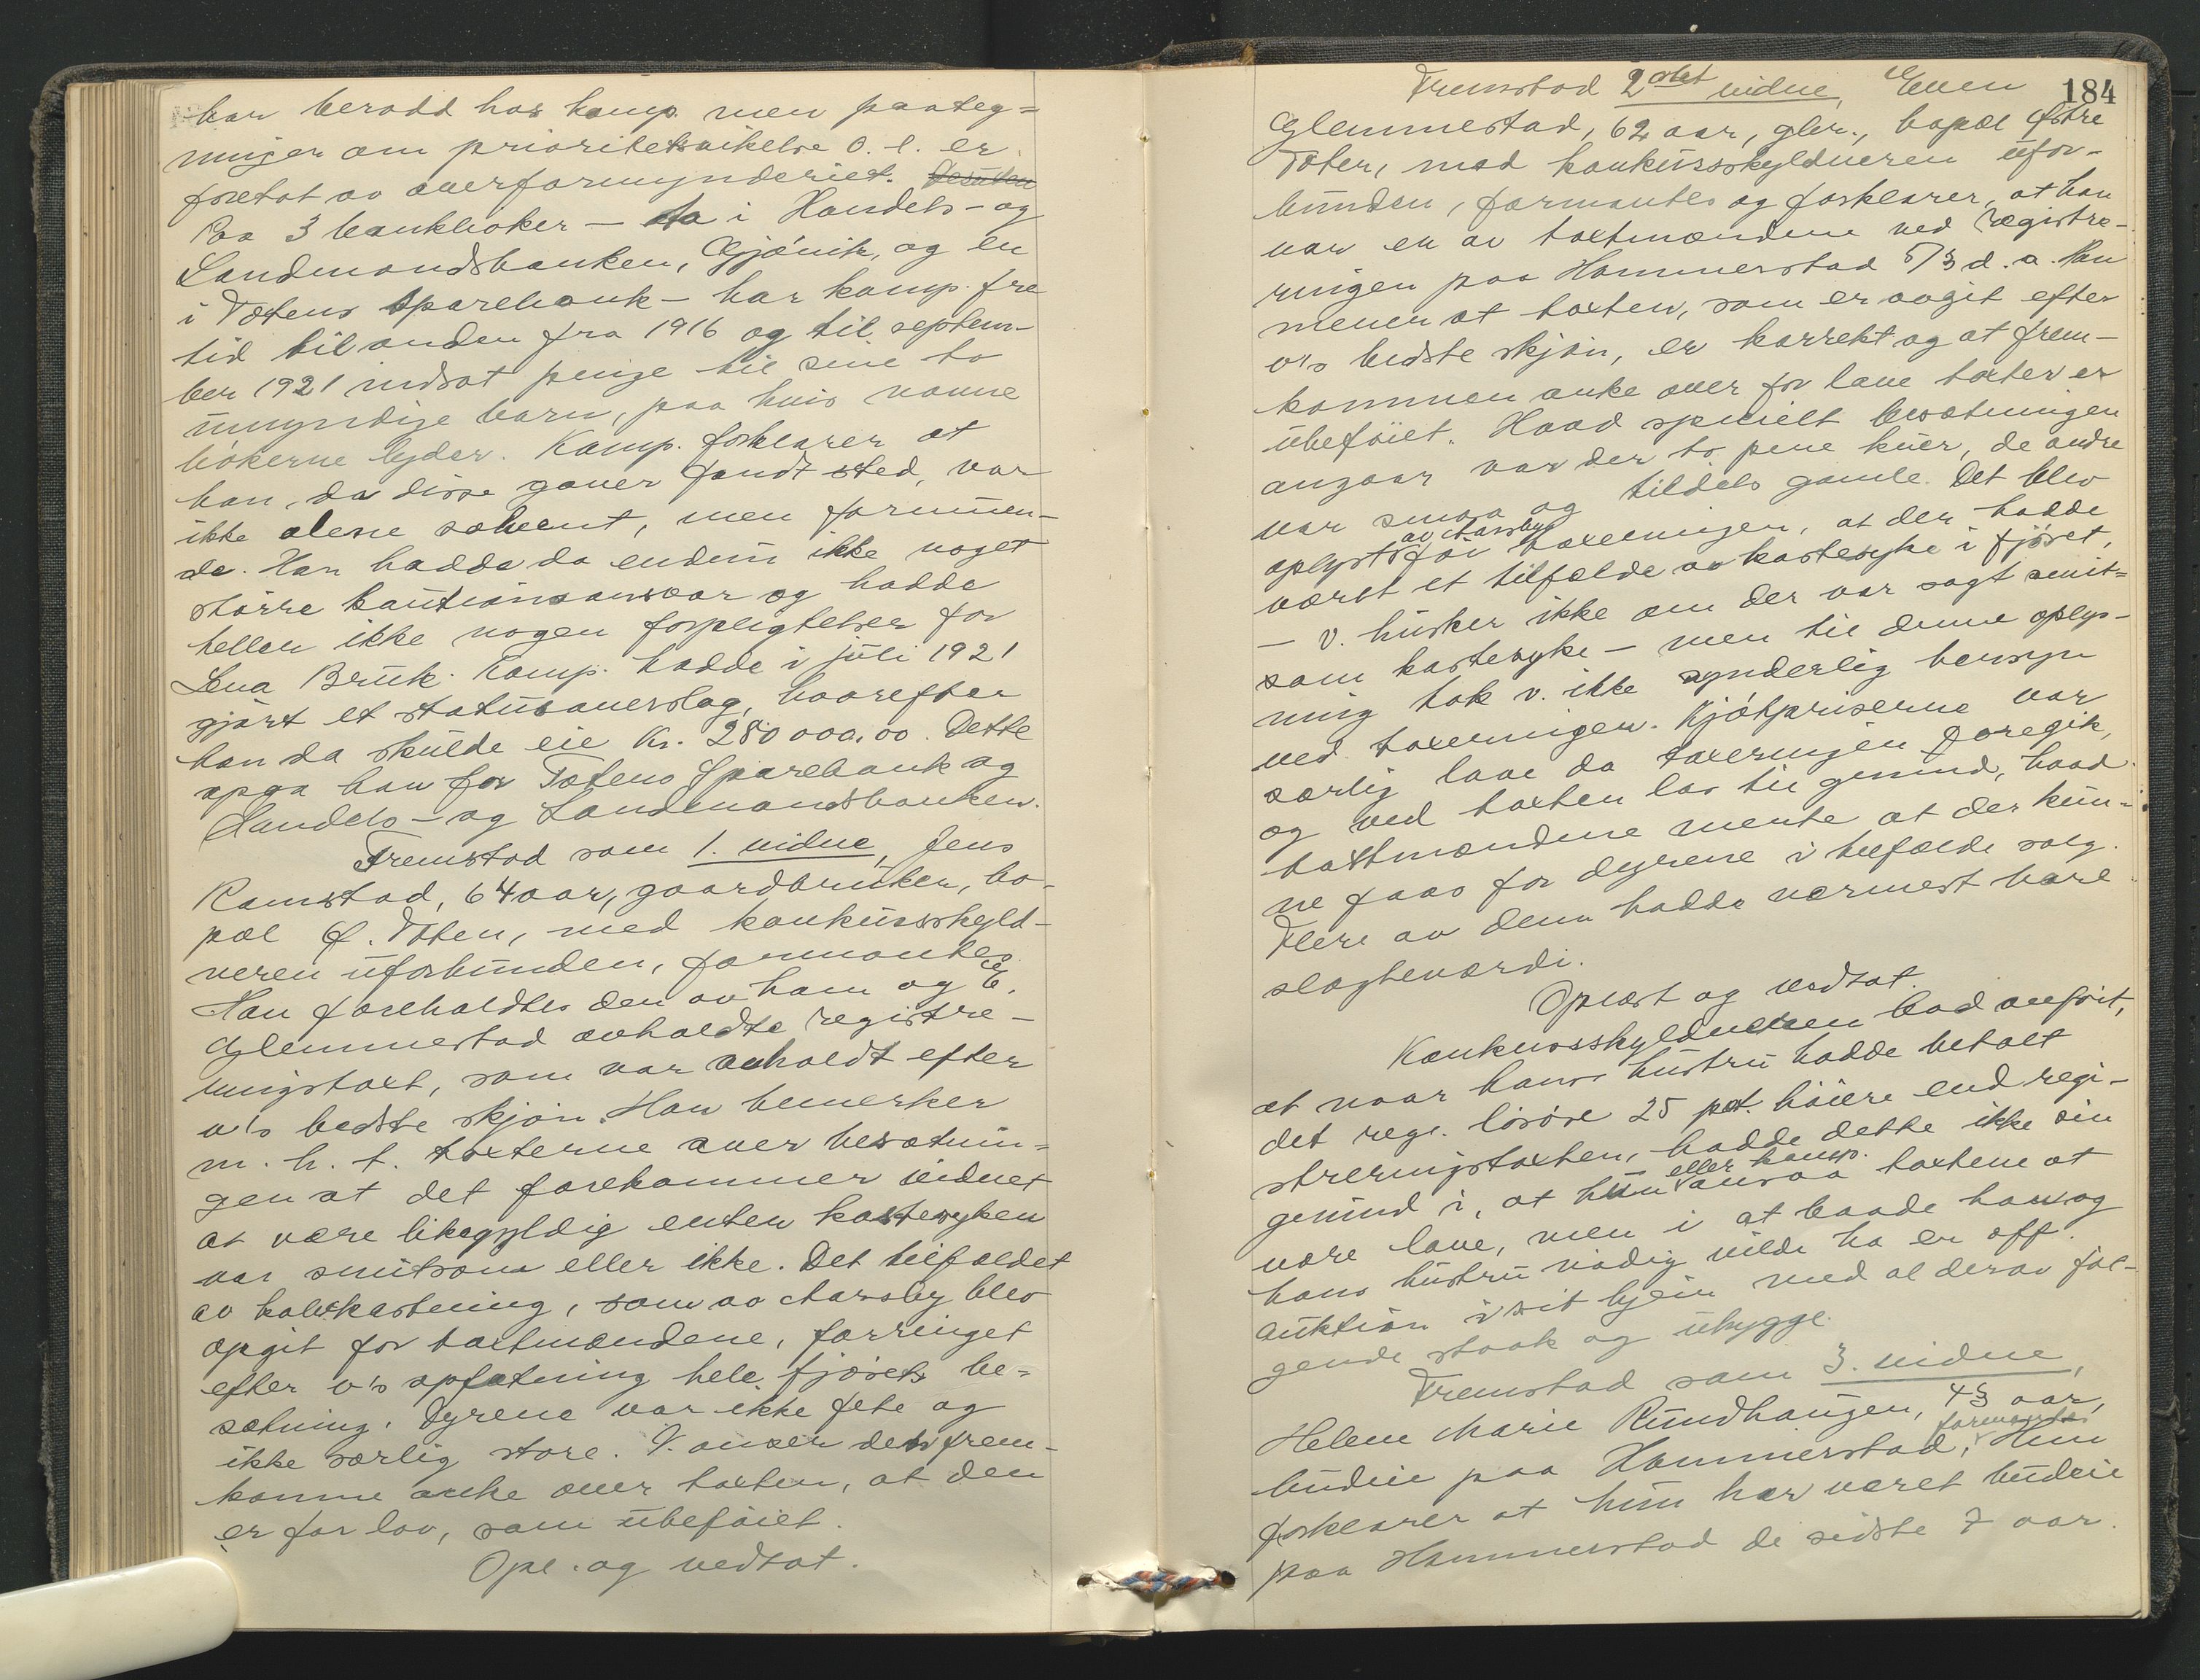 har berodd hos komp. men paateg-
ninger om prioritetsvikelse o. l. er
foretat av overformynderiet. Desuten
Paa 3 bankbøker — to i Handels- og
Landmandsbanken, Gjøvik, og en
i Totens Sparebank — har komp. fra
tid til anden fra 1916 og til septem-
ber 1921 indsat penge til sine to
umyndige barn, paa hvis navne
bøkerne lyder. Komp. forklarer at
han, da disse gaver fandt sted, var
ikke alene solvent, men formuen-
de. Han hadde da endnu ikke noget
større kautionsansvar og hadde
heller ikke nogen forpligtelser for
Lena Bruk. Komp. hadde i juli 1921
gjort et statusoverslag, hvorefter
han da skulde eie Kr. 280 000,00. Dette
opga han for Totens Sparebank og
Handels- og Landmandsbanken.
Fremstod som 1. vidne, Jens
Ramstad, 64 aar, gaardbruker, bo-
pæl Ø. Toten, med konkursskyld-
neren uforbunden, formantes.
Han foreholdtes den av ham og E.
Glemmestad avholdte registre-
ringstaxt, som var avholdt efter
v's bedste skjøn. Han bemerker
m. h. t. taxterne over besætnin-
gen at det forekommer vidnet
at være likegyldig enten kastesyken
var smitsom eller ikke. Det tilfældet
av kalvkastning, som av Aarsby blev
opgit for taxtmændene, forringet
efter v's opfatning hele fjøsets be-
sætning. Dyrene var ikke fete og
ikke særlig store. V. anser den frem-
komne anke over taxten, at den
er for lav, som ubeføiet.
Opl. og vedtat.
184
Fremstod 2det vidne, Even
Glemmestad, 62 aar, gbr., bopæl Østre
Toten, med konkursskyldneren ufor-
bunden, formantes og forklarer, at han
var en av taxtmændene ved registre-
ringen paa Hammerstad 5/3 d. a. Han
mener at taxten, som er avgit efter
v's bedste skjøn, er korrekt og at frem-
kommen anke over for lave taxter er
ubeføiet. Hvad specielt besætningen
angaar var der to pene kuer, de andre
var smaa og tildels gamle. Det blev
av Aarsby
oplyst før taxeringen, at der hadde
været et tilfælde av kastesyke i fjøset,
— v. husker ikke om der var sagt smit-
som kastesyke — men til denne oplys-
ning tok v. ikke synderlig hensyn
ved taxeringen. Kjøtpriserne var
særlig lave da taxeringen foregik,
og ved taxten laa til grund, hvad
taxtmændene mente at der kun-
ne faaes for dyrene i tilfælde salg.
Flere av dem hadde nærmest bare
slagteværdi.
Oplæst og vedtat.
Konkursskyldneren bad anført,
at naar hans hustru hadde betalt
det regi. løsøre 25 pct. høiere end regi-
streringstaxten, hadde dette ikke sin
eller komp.
grund i, at hun ansaa taxtene at
være lave, men i at baade han og
hans hustru nødig vilde ha en off.
auktion i sit hjem med al derav føl-
gende staak og uhygge.
Fremstod som 3. vidne,
Helene Marie Rundhaugen, 43 aar,
formantes
budeie paa Hammerstad, Hun
forklarer at hun har været budeie
paa Hammerstad de sidste 7 aar.